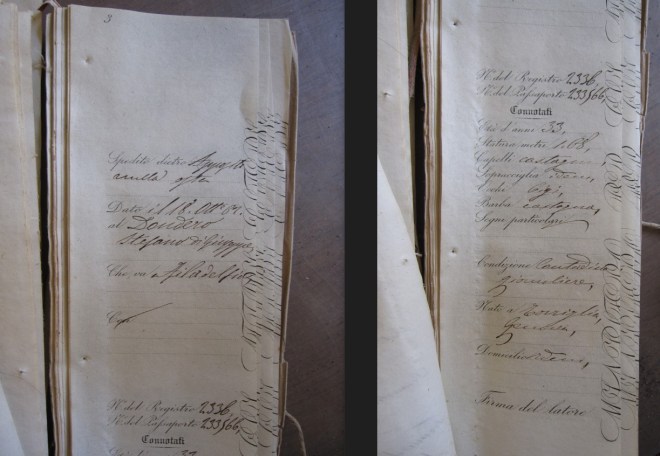 3
Spedito dietro
nulla osta
Dato il 18. Ott
al Dondero
Stefano di Giuseppe
Che, va a Filadelfia,
Con
Nº. del Registro 2336,
Nº. del Passaporto 233566,
Connotati
33
Nº. del Registro 2336,
Nº. del Passaporto 233566,
Connotati
Età d'anni 33,
Statura metri 1.68,
Capelli castagni
Sopracciglia idem,
Occhi bigi,
Barba castagna,
Segni particolari
Condizione Contadino
giornaliere,
Nato a Moneglia,
Genova,
Domicilio idem,
Firma del latore